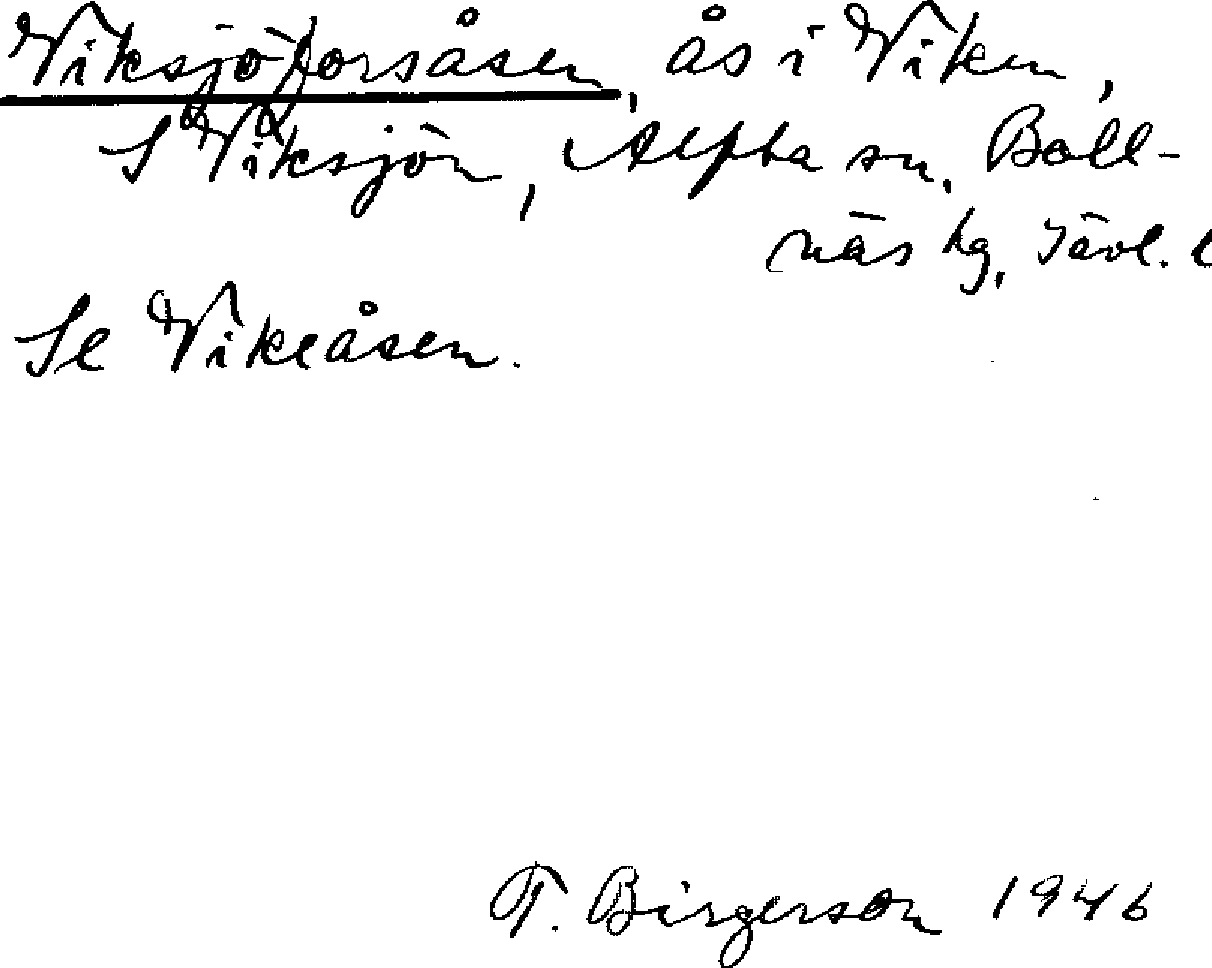 Viksjöforsåsen, ås i Viken,
S Viksjön, Alfta sn. Boll-
näs hg, Gävl. l
Se Vikeåsen.
T. Birgerson 1946